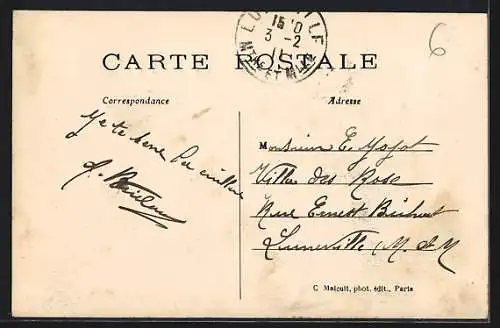 LUNÉVILLE
15 10
3 -2
11
MTHE ET MLLE
6
CARTE POSTALE
Correspondance
Adresse
Je te serre la
Monsieur E.
Villa des Roses
Rue Ernest Bichat
Lunéville (M. & M
C Malcuit, phot. édit., Paris